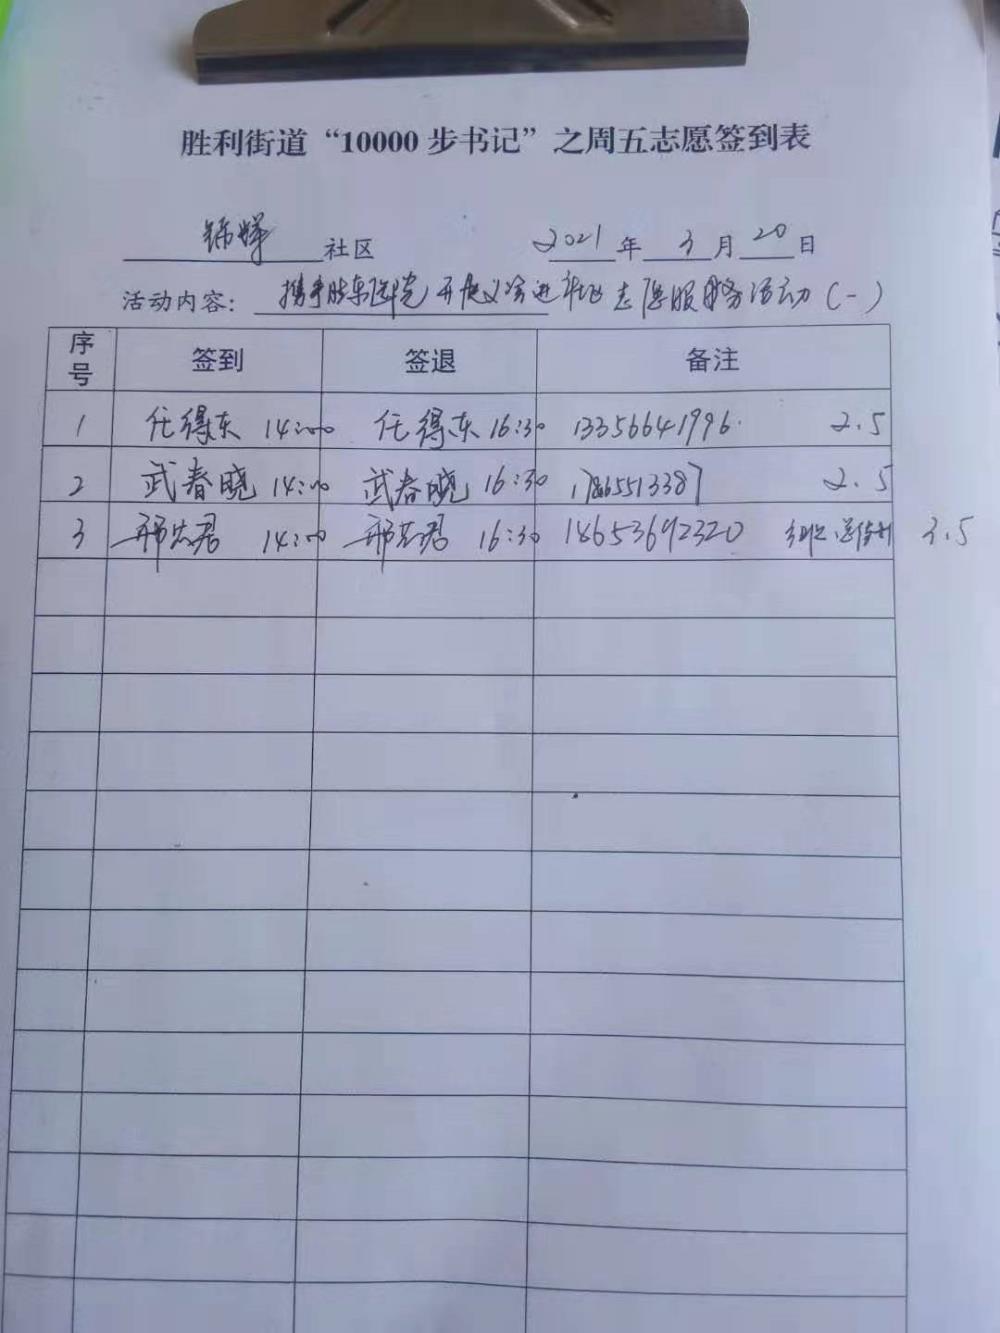 胜利街道“10000步书记”之周五志愿签到表
社区 2021年 3月 20日
活动内容：携手胜东医院开展义诊进社区志愿服务活动(一)
序号 签到 签退 备注
1 任得东 14:00 任得东 16:30 13356641996. 2.5
2 武春晓 14:00 武春晓 16:30 17865513387 2.5
3 邢志君 14:00 邢志君 16:30 18653692320 3.5